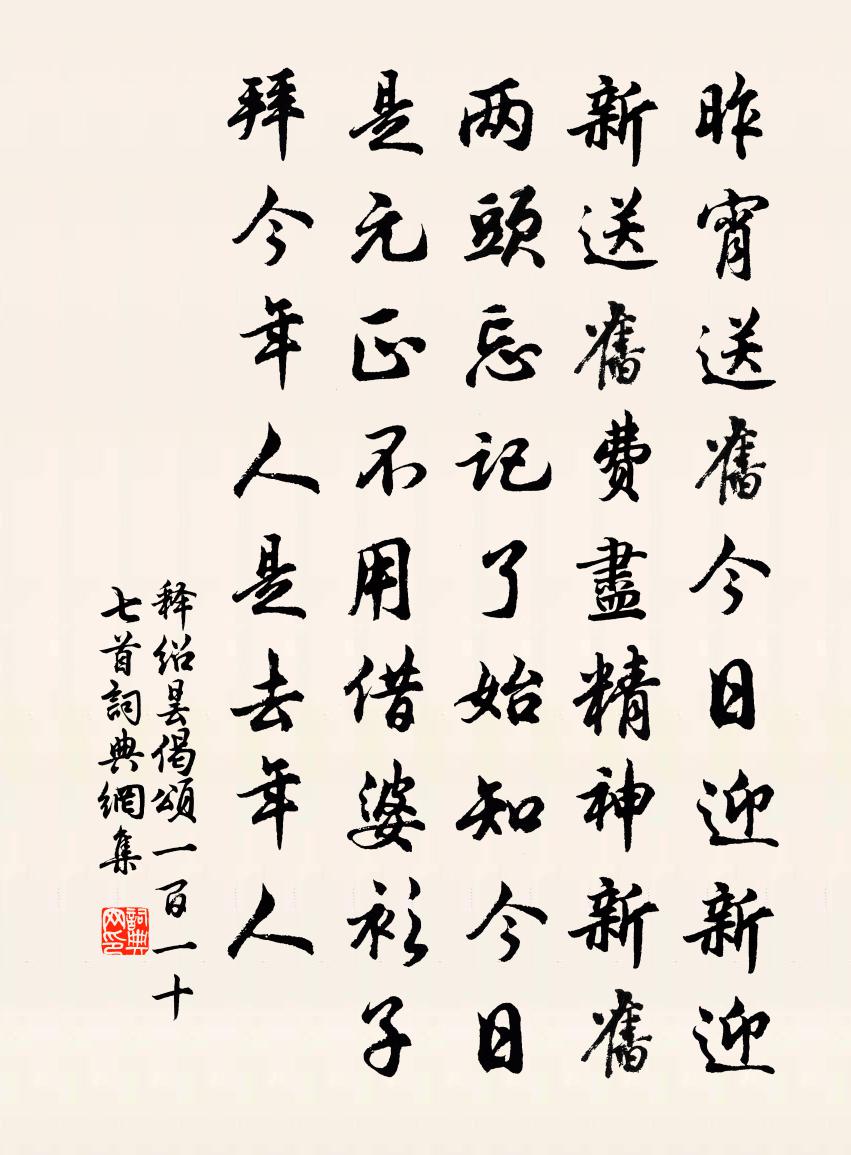 昨宵送舊今日迎新迎
新送舊費盡精神新舊
两頭忘记了始知今日
是元正不用借婆衫子
拜今年人是去年人
释绍昙偈頌一百一十
七首詞典網集
詞典网印